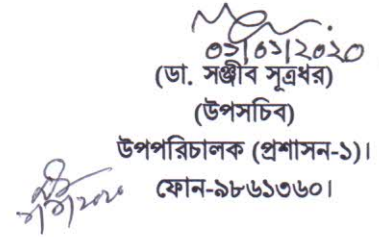 ০১/০১/২০২০
(ডা. সঞ্জীব সূত্রধর)
(উপসচিব)
উপপরিচালক (প্রশাসন-১)।
ফোন-৯৮৬১৩৬০।